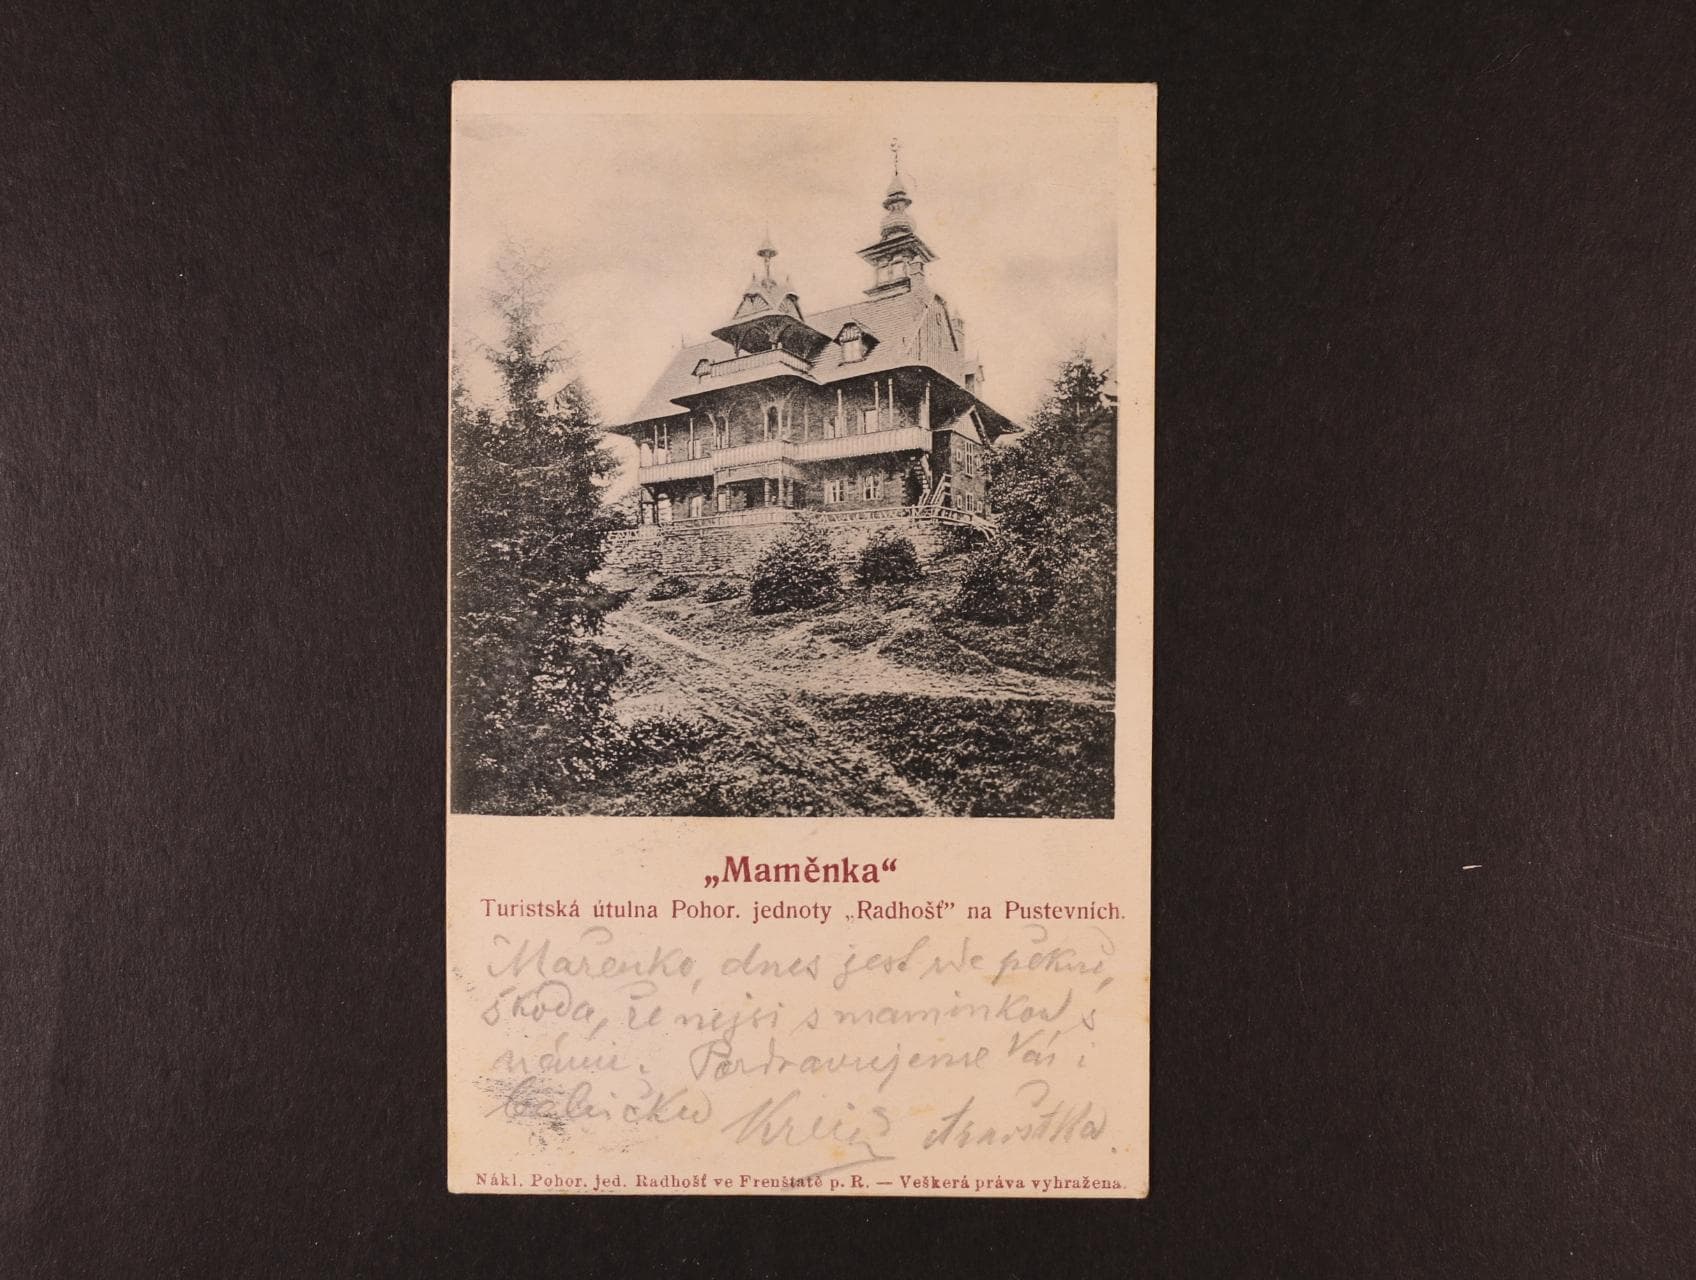 „Maměnka“
Turistská útulna Pohor. jednoty „Radhošť” na Pustevních.
Mařenko, dnes jest zde pěkně,
škoda, že nejsi s maminkou s
námi. Pozdravujeme Vás i
babičku
Nákl. Pohor. jed. Radhošť ve Frenštatě p. R. — Veškerá práva vyhražena.